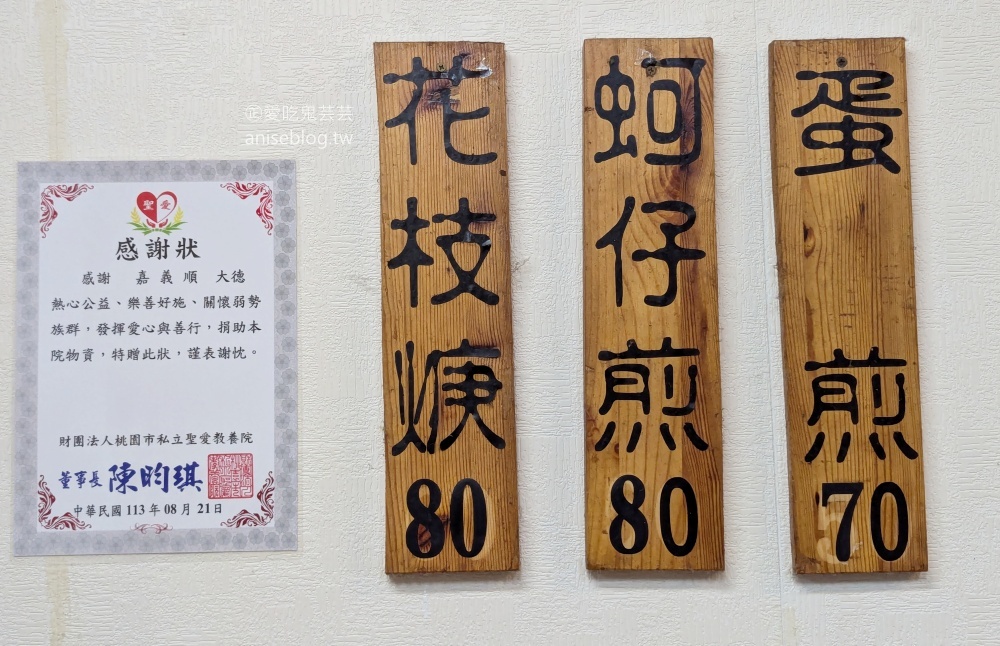 愛吃鬼芸芸
aniseblog.tw
聖愛
感謝狀
感謝 嘉義順 大德
熱心公益、樂善好施、關懷弱勢
族群，發揮愛心與善行，捐助本
院物資，特贈此狀，謹表謝忱。
財團法人桃園市私立聖愛教養院
董事長 陳昀琪
中華民國 113 年 08 月 21 日
花枝焿
80
蚵仔煎
80
蛋煎
70